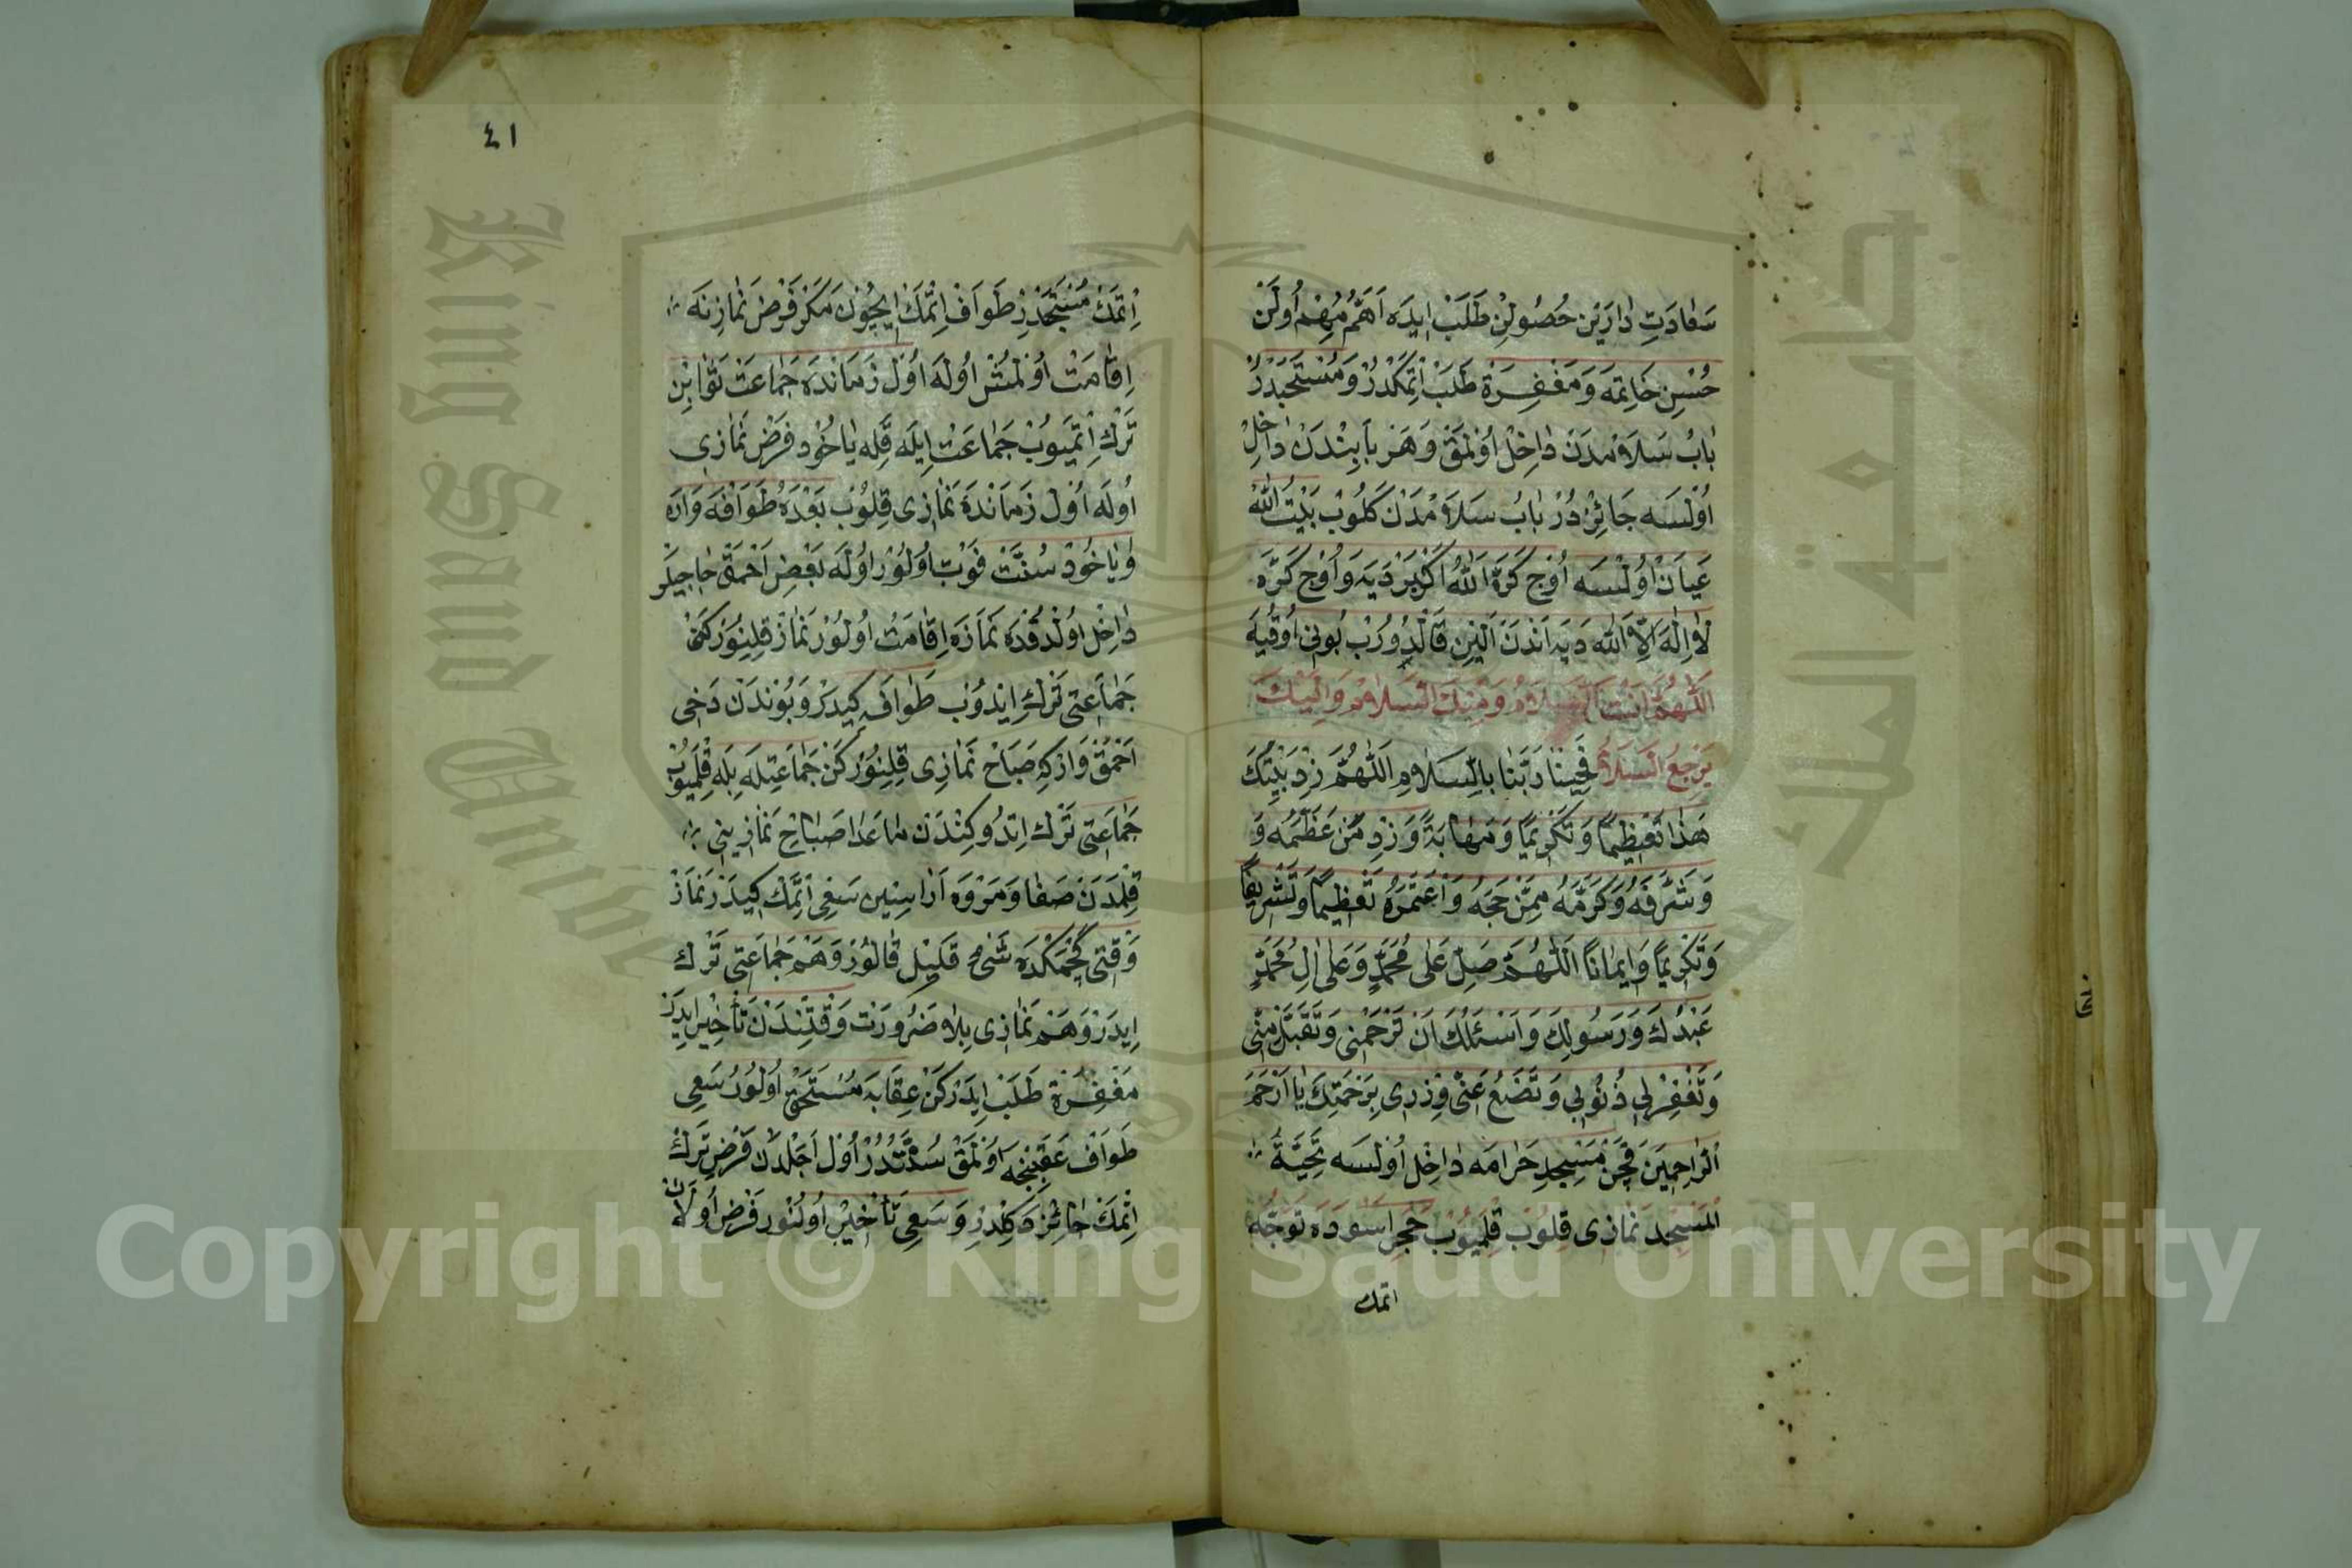 سَعَادَتِ دَارَيْن حُصُولِنْ طَلَبْ ايدَه اَهَمُّ مُهِمْ اُولَنْ
حُسْنِ خَاتِمَه وَمَغْفِرَةْ طَلَبْ اِتْمَكْدُرْ وَمُسْتَحَبْدُرْ
بَابُ سَلَامْدَنْ دَاخِلْ اُولْمَقْ وَهَرْ بَابِنْدَنْ دَاخِلْ
اُولْسَه جَائِزْ دُرْ بَابُ سَلَامْدَنْ كَلُوبْ بَيْتُ اللّٰه
عَيَانْ اُولْسَه اُوْچ كَرَّه اَللّٰهُ اَكْبَرْ دَيَه وَاُوْچ كَرَّه
لَا اِلٰهَ اِلَّا اللّٰه دَيَه اَنْدَنْ اَلْيِن قَالْدُورُبْ بُونِى اُوقُيَه
اَللّٰهُمَّ اَنْتَ السَّلَامُ وَمِنْكَ السَّلَامْ وَاِلَيْكَ
يَرْجِعُ السَّلَامُ فَحَيِّنَا رَبَّنَا بِالسَّلَامِ اَللّٰهُمَّ زِدْ بَيْتَكَ
هٰذَا تَعْظِيمًا وَتَكْرِيمًا وَمَهَابَةً وَزِدْ مَنْ عَظَّمَهُ وَ
وَشَرَّفَهُ وَكَرَّمَهُ مِمَّنْ حَجَّهُ وَاعْتَمَرَهُ تَعْظِيمًا وَتَشْرِيفًا
وَتَكْرِيمًا وَاِيمَانًا اَللّٰهُمَّ صَلِّ عَلَى مُحَمَّدٍ وَعَلَى اٰلِ مُحَمَّدٍ
عَبْدُكَ وَرَسُولِكَ وَاَسْئَلُكَ اَنْ تَرْحَمْنِى وَتَقَبَّلْ مِنِّى
وَتَغْفِرْلِى ذُنُوبِى وَتَضَعُ عَنِّى وِزْرِى بِرَحْمَتِكَ يَا اَرْحَمَ
الرَّاحِمِينَ قَچَنْ مَسْجِدِ حَرَامَه دَاخِلْ اُولْسَه تَحِيَّةُ
الْمَسْجِد نَمَازِى قِلُوبْ قِلْمَيُوبْ حَجَرِ اسْوَدَه تَوَجُّه
اتمك
٤١
اِتْمَكْ مُسْتَحَبْدُرْ طَوَافْ اِتْمَكْ اِيچُونْ مَكَرْ فَرْضِ نَمَازِنَه
اِقَامَتْ اُولْمُشْ اُولَه اُولْ زَمَانْدَه جَمَاعَتْ ثَوَابِنْ
تَرْكِ اِتْمَيُوبْ جَمَاعَتْ اِيلَه قِلَه يَاخُودْ فَرْضِ نَمَازِى
اُولَه اُولْ زَمَانْدَه نَمَازِى قِلُوبْ بَعْدَهُ طَوَافَه وَارَه
وَيَاخُودْ سُنَّتْ فَوْتْ اُولُورْ اُولَه بَعْضِ اَحْمَقْ حَاجِيلَرْ
دَاخِلْ اُولْدُقْدَه نَمَازَه اِقَامَتْ اُولُورْ نَمَازْ قِلِنُورْكَنْ
جَمَاعَتِى تَرْكِ ايدُوبْ طَوَافَه كِيدَرْ وَبُونْدَنْ دَخِى
اَحْمَقْ وَارْكِه صَبَاحْ نَمَازِى قِلِنُورْكَنْ جَمَاعَتِلَه بِلَه قِلْمَيُوبْ
جَمَاعَتِى تَرْكْ اِتْدُوكِنْدَنْ مَاعَدَا صَبَاحْ نَمَازِينِى
قِلْمَدَنْ صَفَا وَمَرْوَه اَرَاسِنِين سَعْى اِتْمَكْ كِيدَرْ نَمَازْ
وَقْتِى كَچْمَكْدَه شَىْءِ قَلِيلْ قَالُورْ وَهَمْ جَمَاعَتِى تَرْكْ
اِيدَرْ وَهَمْ نَمَازِى بِلَا ضَرُورَتْ وَقْتِنْدَنْ تَأْخِيرْ ايدَرْ
مَغْفِرَةْ طَلَبْ ايدَرْكَنْ عِقَابَه مُسْتَحَقْ اُولُورْ سَعْى
طَوَافْ عَقِبِنْجَه اُولْمَقْ سُنَّتْدُرْ اُولْ اَجْلِدَنْ فَرْضِ تَرْكْ
اِتْمَكْ جَائِزْ دَكِلْدِرْ وَسَعْى تَأْخِيرْ اُولُنُورْ فَرْضْ اُولَانْ